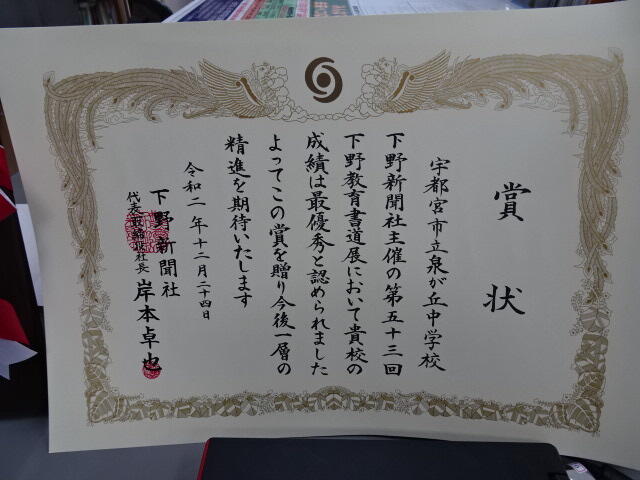 賞状
宇都宮市立泉が丘中学校
下野新聞社主催の第五十三回
下野教育書道展において貴校の
成績は最優秀と認められました
よってこの賞を贈り今後一層の
精進を期待いたします
令和二年十二月二十四日
下野新聞社
代表取締役社長 岸本卓也